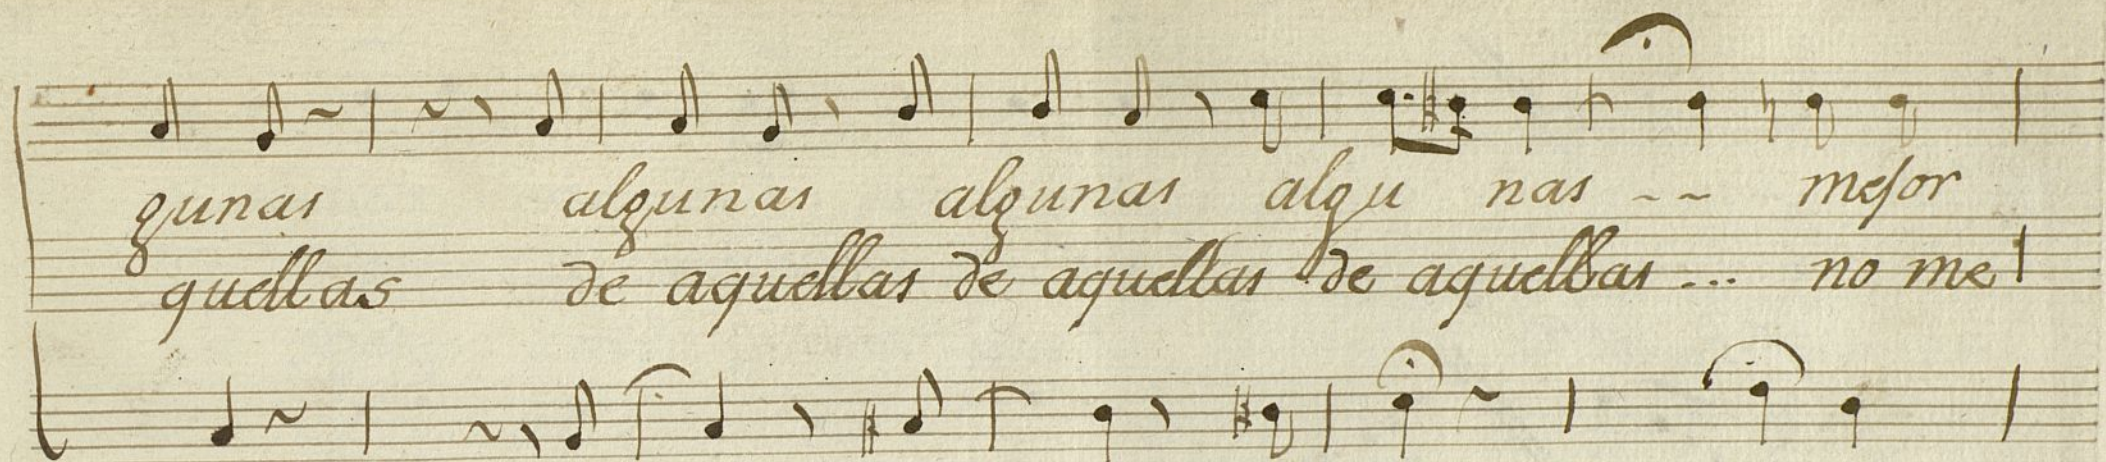 gunas algunas algunas algu nas -- mejor
quellas de aquellas de aquellas de aquellas ... no me